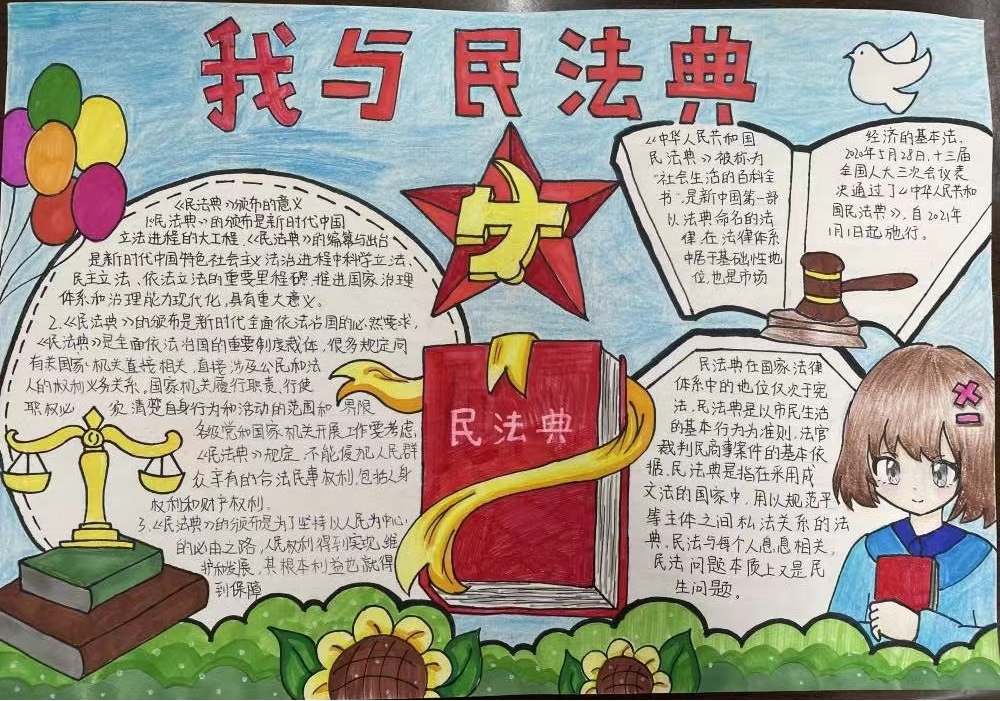 我与民法典
《民法典》颁布的意义
1.民法典》的颁布是新时代中国
立法进程的大工程,《民法典》的编纂与出台
是新时代中国特色社会主义法治进程中科学立法、
民主立法、依法立法的重要里程碑,推进国家治理
体系和治理能力现代化,具有重大意义。
2.《民法典》的颁布是新时代全面依法治国的必然要求,
《民法典》是全面依法治国的重要制度载体,很多规定同
有关国家机关直接相关,直接涉及公民和法
人的权利义务关系,国家机关履行职责,行使
职权必须清楚自身行为和活动的范围和界限
各级党和国家机关开展工作要考虑,
《民法典》规定,不能侵犯人民群
众享有的合法民事权利,包括人身
权利和财产权利。
3.《民法典》的颁布是为了坚持以人民为中心,
的必由之路,人民权利得到实现,维
护和发展,其根本利益也就得
到保障
民法典
《中华人民共和国
民法典》被称为
“社会生活的百科全
书”,是新中国第一部
以法典命名的法
律,在法律体系
中居于基础性地
位,也是市场
经济的基本法,
2020年5月28日,十三届
全国人大三次会议表
决通过了《中华人民共和
国民法典》,自2021年
1月1日起施行。
民法典在国家法律
体系中的地位仅次于宪
法,民法典是以市民生活
的基本行为为准则,法官
裁判民商事案件的基本依
据,民法典是指在采用成
文法的国家中,用以规范平
等主体之间私法关系的法
典,民法与每个人息息相关,
民法问题本质上又是民
生问题。